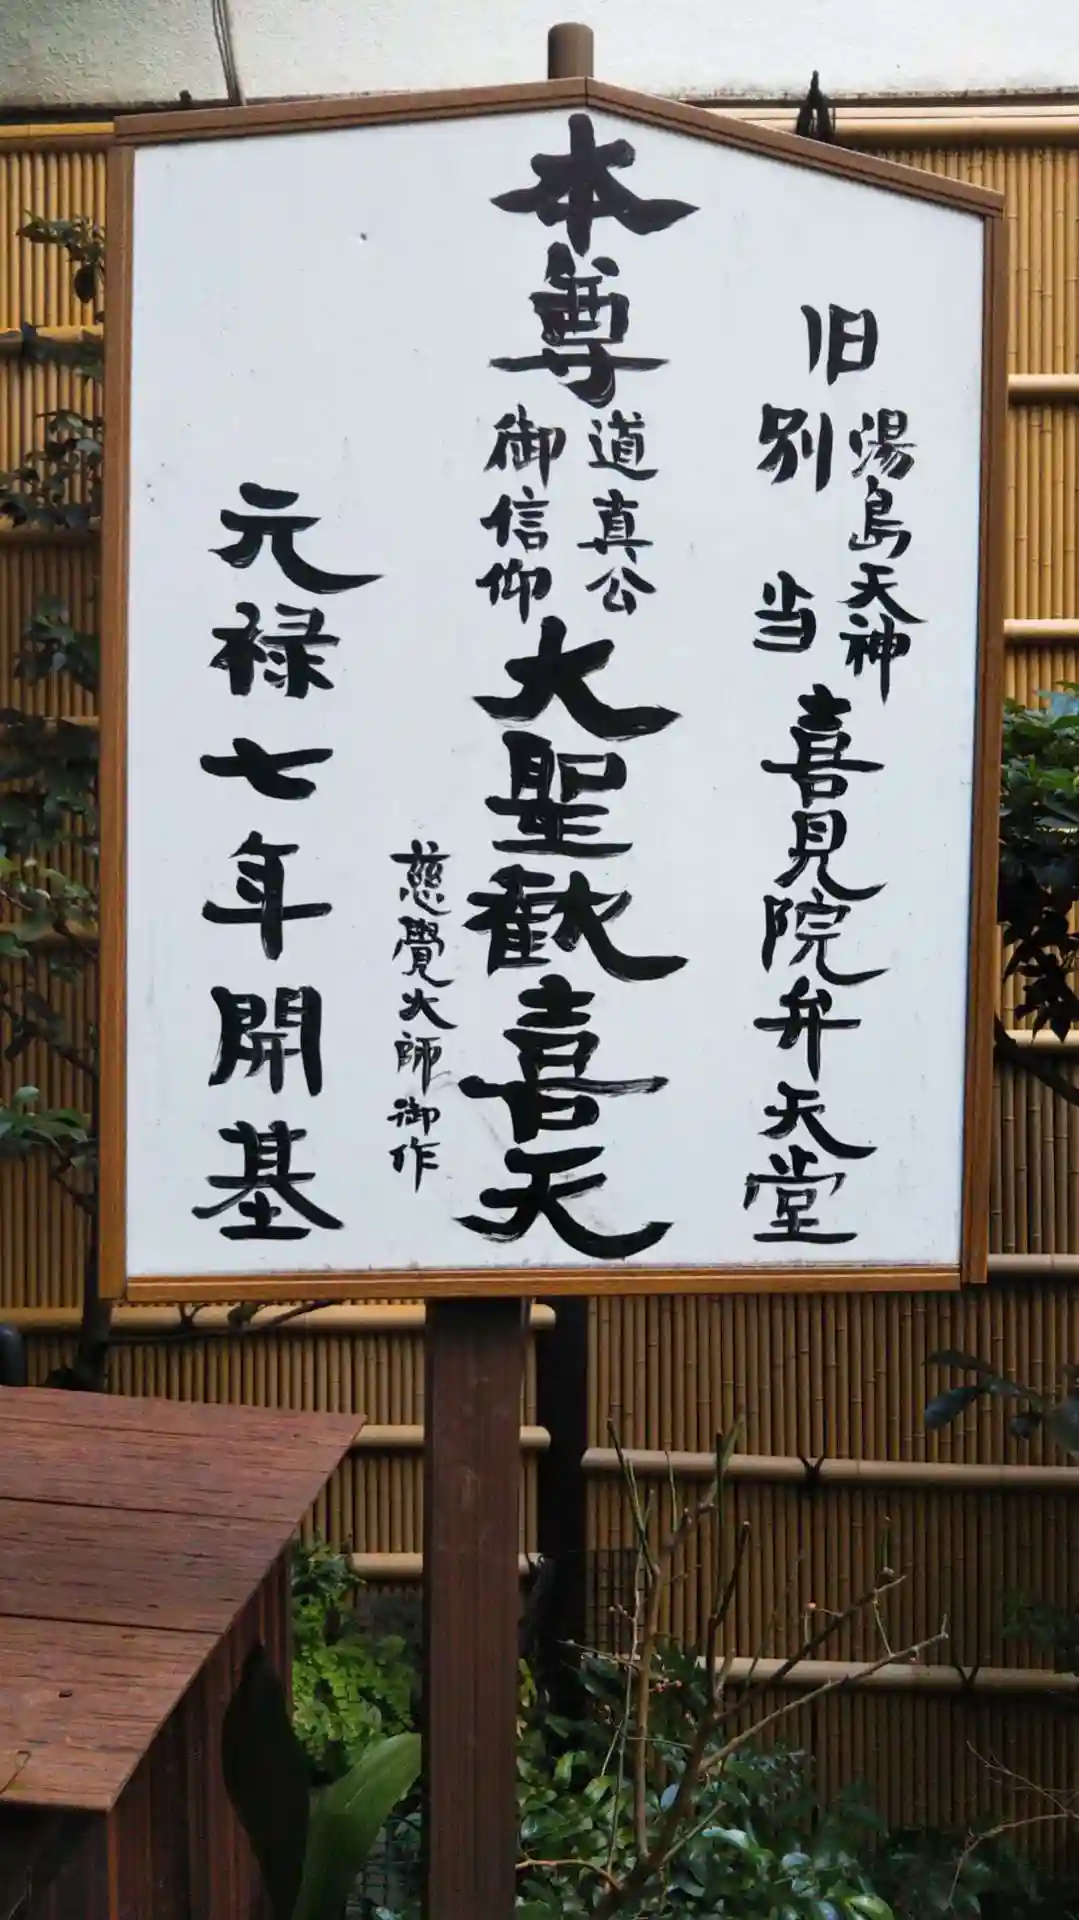 旧 湯島天神
別当 喜見院弁天堂
本尊 道真公
御信仰 大聖歓喜天
慈覺大師御作
元禄七年開基